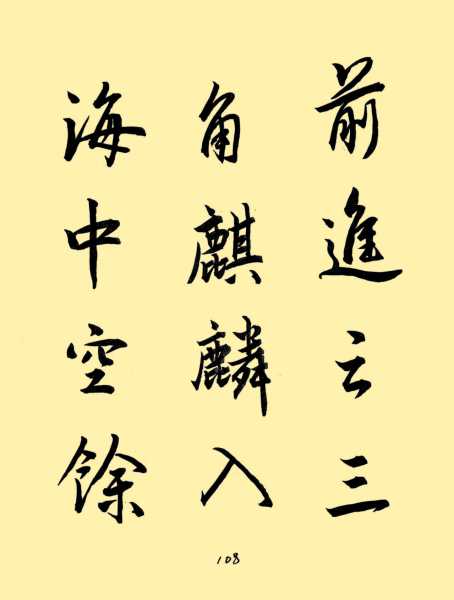 前進云三
角麒麟入
海中空餘
108